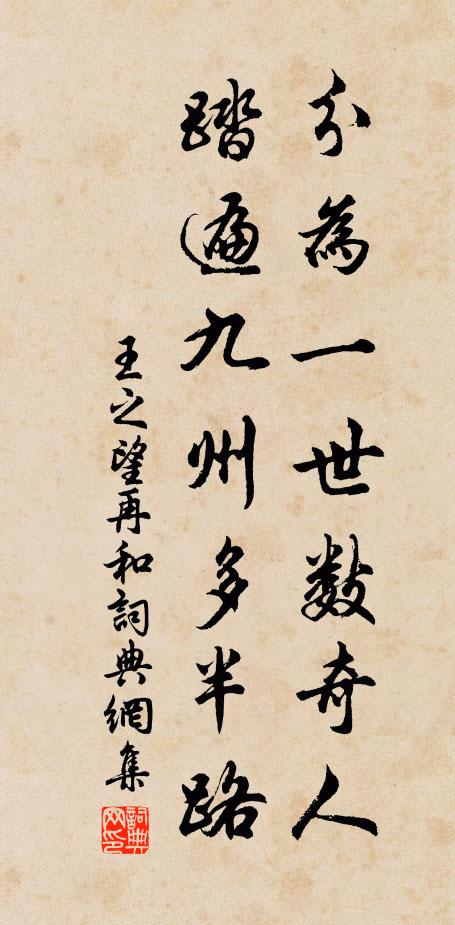 分為一世數奇人
踏遍九州多半路
王之望再和詞典網集
詞典網印